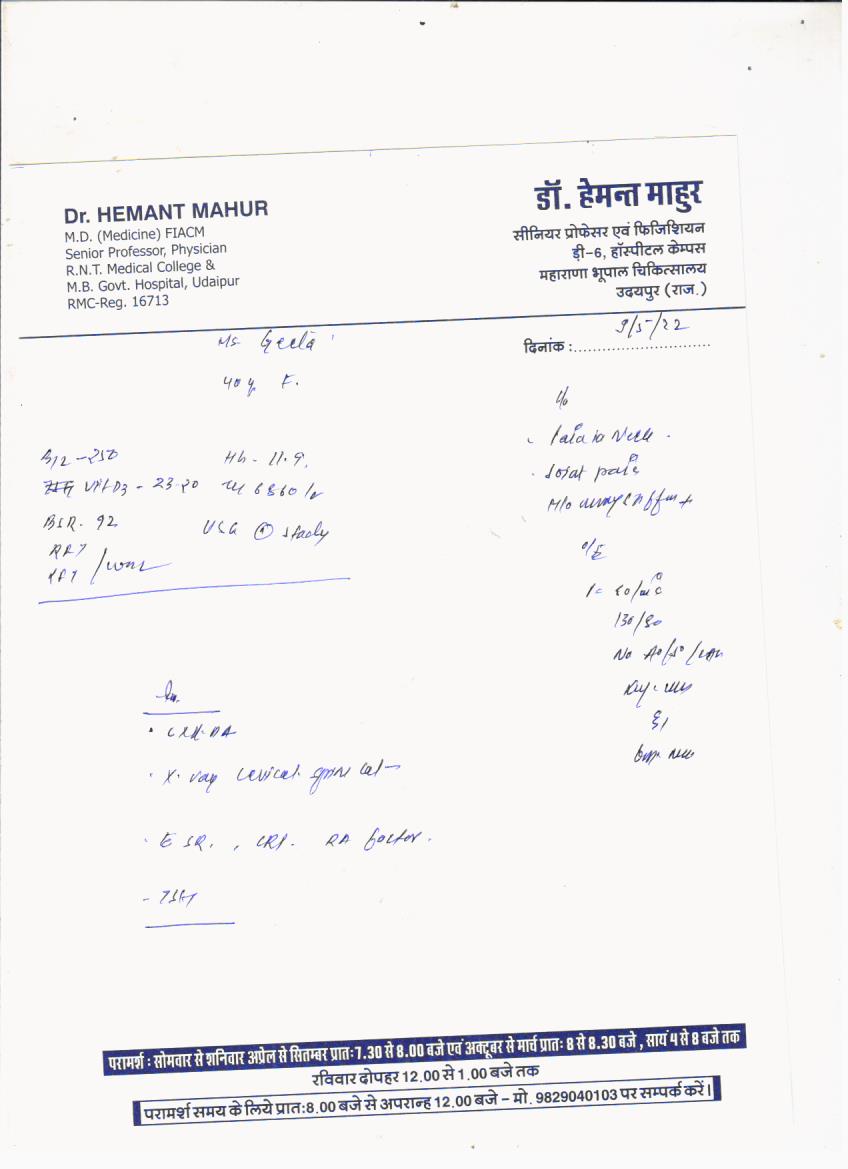 Dr. HEMANT MAHUR
M.D. (Medicine) FIACM
Senior Professor, Physician
R.N.T. Medical College &
M.B. Govt. Hospital, Udaipur
RMC-Reg. 16713
डॉ. हेमन्त माहुर
सीनियर प्रोफेसर एवं फिजिशियन
ड़ी-6, हॉस्पीटल केम्पस
महाराणा भूपाल चिकित्सालय
उदयपुर (राज.)
दिनांक : 9/5/22
Ms. Geeta
40 y F.
B12 - 250
Vit D3 - 23.20
BSR. 92
RFT
LFT
Hb - 11.9
6860
USG study
c/o
Pain in Neck
Joint pain
H/o
O/E
130/80
No
CXR-PA
X-ray cervical spine Lat
ESR, CRP. RA factor.
- TSH
परामर्श : सोमवार से शनिवार अप्रेल से सितम्बर प्रातः 7.30 से 8.00 बजे एवं अक्टूबर से मार्च प्रातः 8 से 8.30 बजे , सायं 4 से 8 बजे तक
रविवार दोपहर 12.00 से 1.00 बजे तक
परामर्श समय के लिये प्रातः 8.00 बजे से अपरान्ह 12.00 बजे - मो. 9829040103 पर सम्पर्क करें।